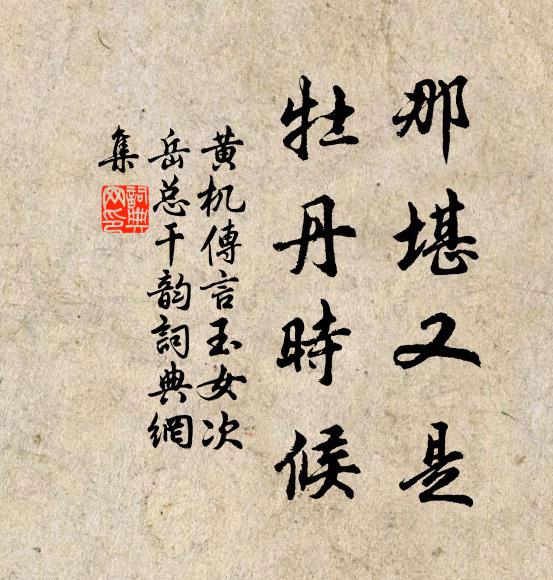 那堪又是
牡丹時候
黄机傳言玉女次
岳总干韵詞典網
集
詞典
网印